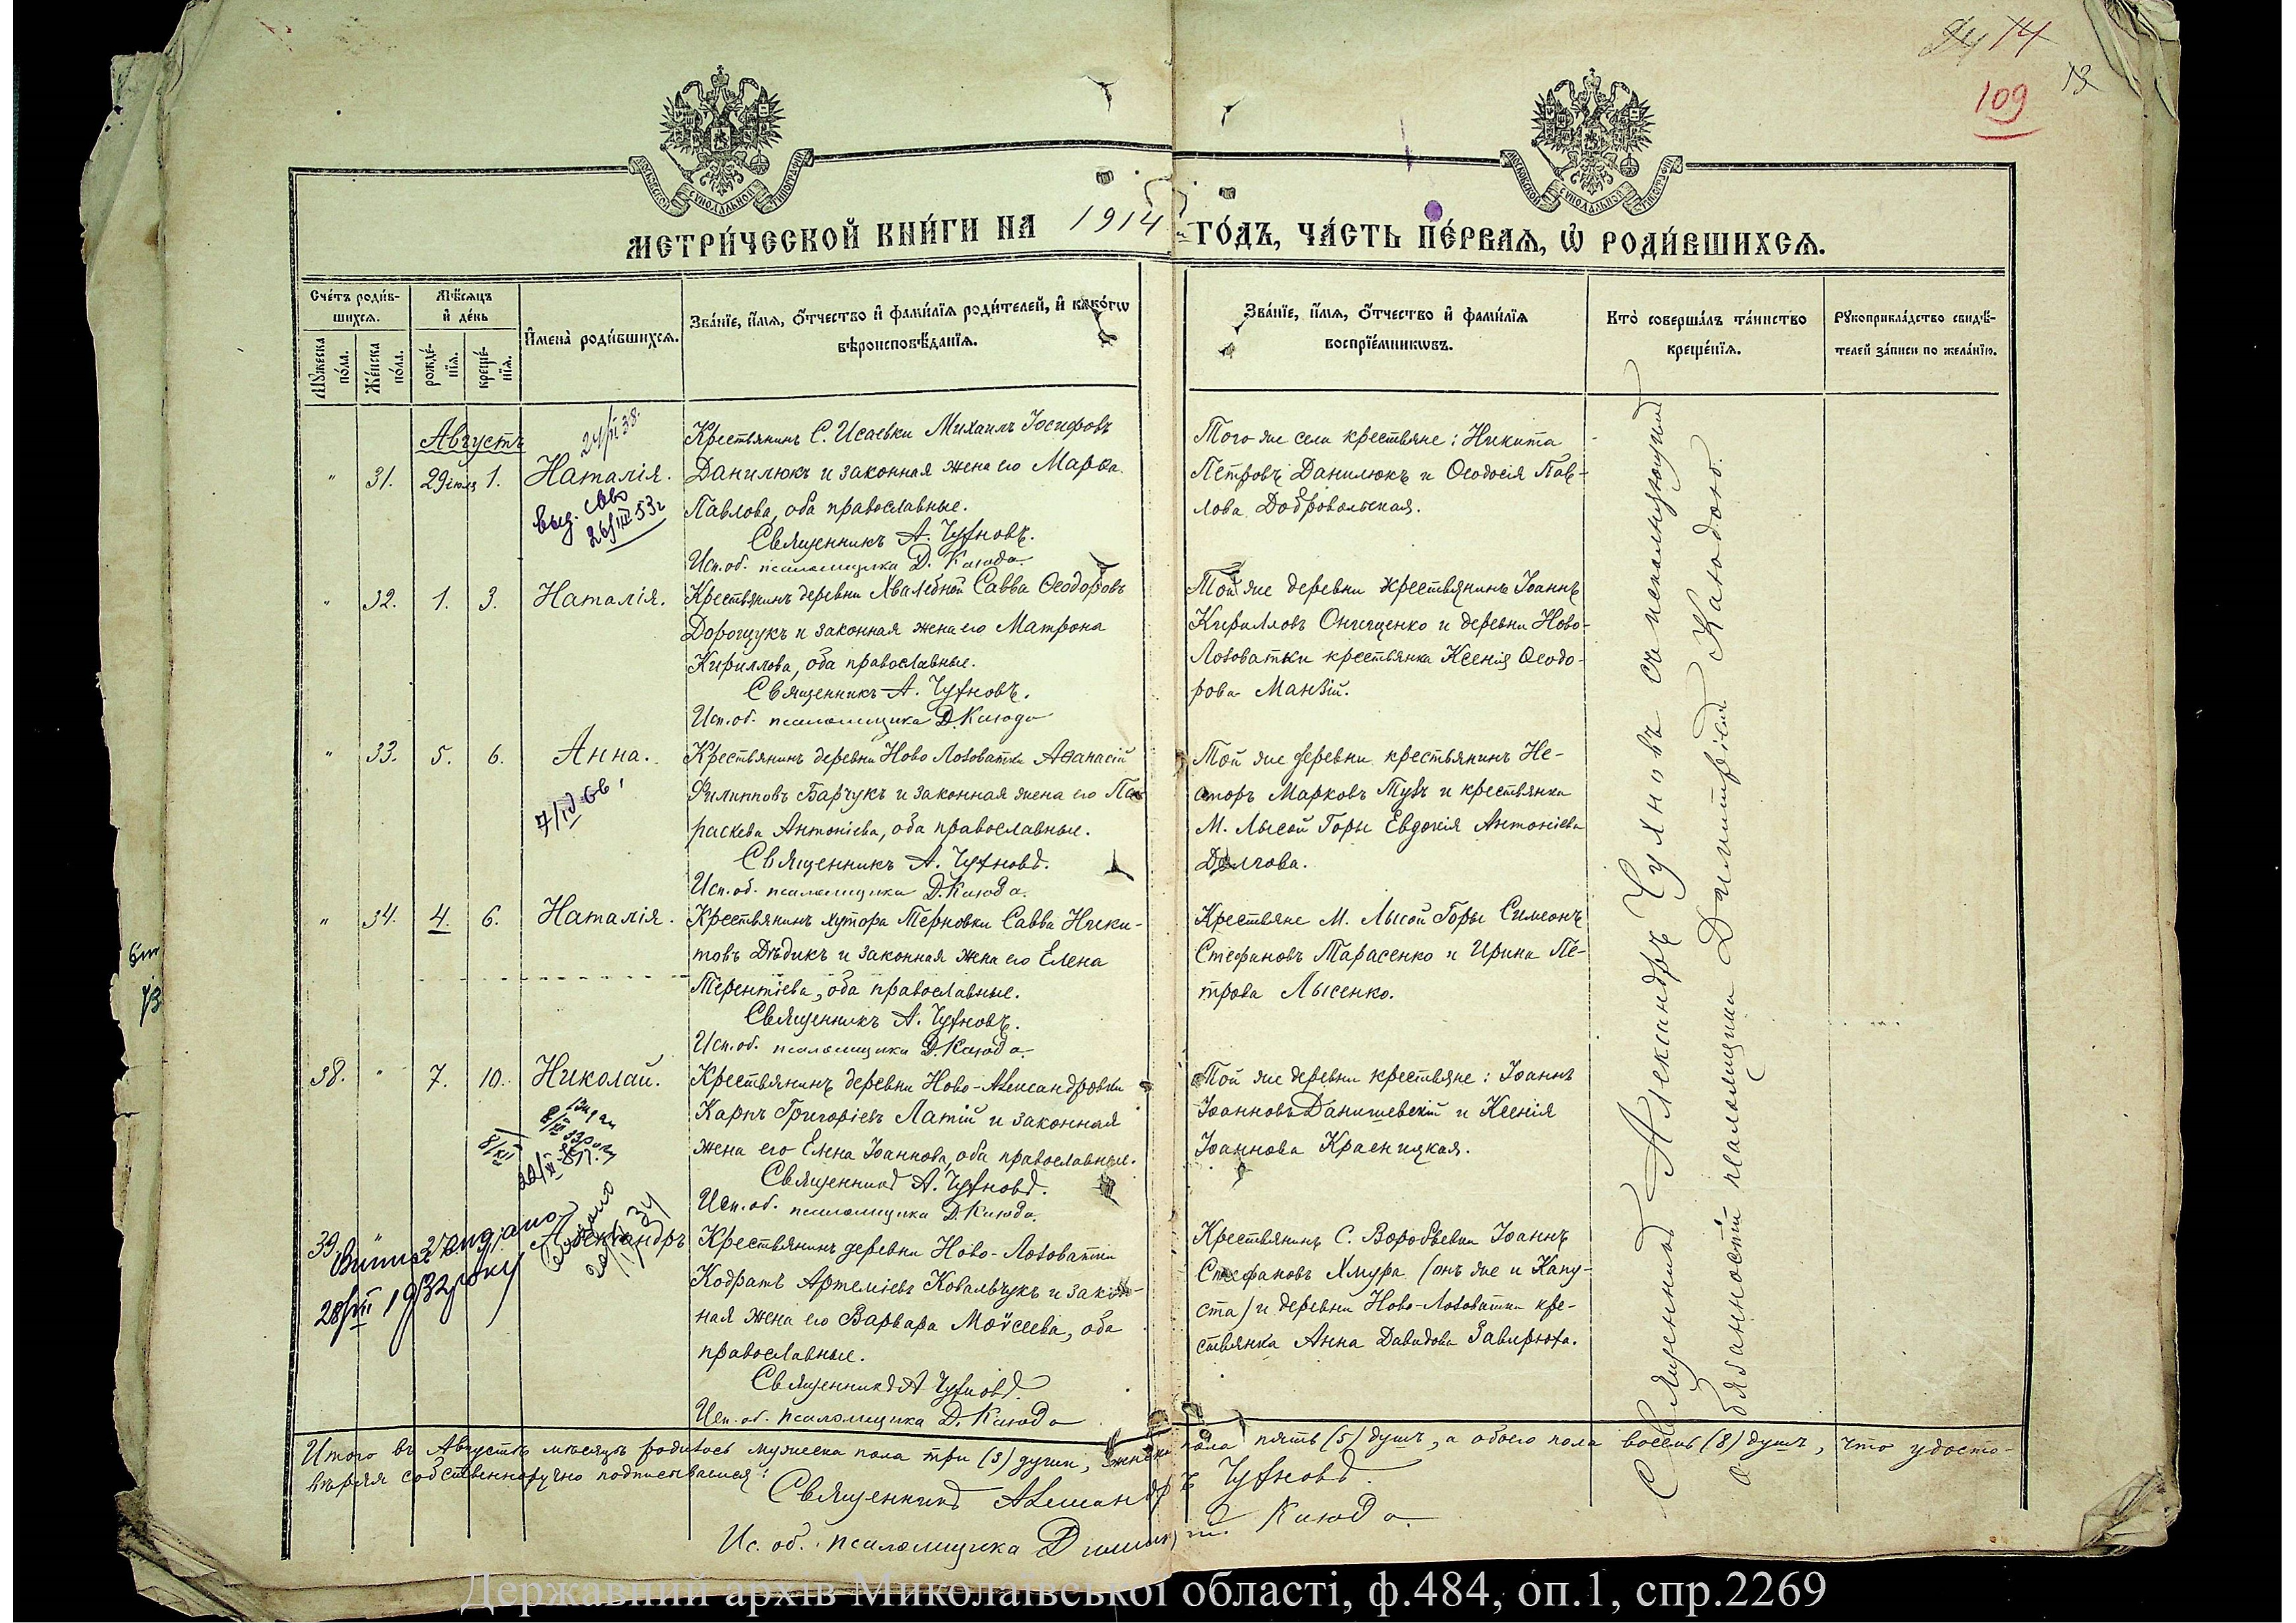 74
109
МОСКОВСКОЙ СУНОДАЛЬНОЙ ТИПОГРАФІИ
МОСКОВСКОЙ СУНОДАЛЬНОЙ ТИПОГРАФІИ
МЕТРИ́ЧЕСКОЙ КНИ́ГИ НА 1914 ГО́ДЪ, ЧА́СТЬ ПЕ́РВАѦ, Ѡ РОДИ́ВШИХСѦ.
Сче́тъ роди́в-
шихсѧ.
Мѣ́сѧцъ
и҆ де́нь
Мꙋ́жеска по́ла.
Же́нска по́ла.
рожде́-нїѧ.
креще́-нїѧ.
И҆мена̀ роди́вшихсѧ.
Зва́нїе, и҆́мѧ, ѻ҆́тчество и҆ фами́лїѧ роди́телей, и҆ како́гѡ
вѣроисповѣ́данїѧ.
Зва́нїе, и҆́мѧ, ѻ҆́тчество и҆ фами́лїѧ
воспрїе́мникѡвъ.
Кто̀ соверша́лъ та́инство
креще́нїѧ.
Рꙋкоприкла́дство свидѣ́-
телей за́писи по жела́нїю.
Августъ
" 31. 29 іюля 1. Наталія.
Крестьянинъ С. Исаевки Михаилъ Іосифовъ
Данилюкъ и законная жена его Марѳа
Павлова, оба православные.
Священникъ А. Чухновъ.
Исп. об. псаломщика Д. Каюда.
Того же села крестьяне: Никита
Петровъ Данилюкъ и Ѳеодосія Пав-
лова Добровольская.
выд. св-во
26/III 53 г
" 32. 1. 3. Наталія.
Крестьянинъ деревни Хвалебной Савва Ѳеодоровъ
Дорощукъ и законная жена его Матрона
Кириллова, оба православные.
Священникъ А. Чухновъ.
Исп. об. псаломщика Д. Каюда
Той же деревни крестьянинъ Іоаннъ
Кирилловъ Онищенко и деревни Ново-
Лозоватки крестьянка Ксенія Ѳеодо-
рова Манзій.
" 33. 5. 6. Анна.
Крестьянинъ деревни Ново Лозоватки Аѳанасій
Филипповъ Барчукъ и законная жена его Па-
раскева Антоніева, оба православные.
Священникъ А. Чухновъ.
Исп. об. псаломщика Д. Каюда.
Той же деревни крестьянинъ Не-
сторъ Марковъ Тузъ и крестьянка
М. Лысой Горы Евдокія Антоніева
Долгова.
7/IV 66
" 34. 4. 6. Наталія.
Крестьянинъ хутора Терновки Савва Ники-
товъ Дѣдикъ и законная жена его Елена
Терентіева, оба православные.
Священникъ А. Чухновъ.
Исп. об. псаломщика Д. Каюда.
Крестьяне М. Лысой Горы Симеонъ
Стефановъ Тарасенко и Ирина Пе-
трова Лысенко.
38. " 7. 10. Николай.
Крестьянинъ деревни Ново-Александровки
Карпъ Григоріевъ Латій и законная
жена его Елена Іоаннова, оба православные.
Священникъ А. Чухновъ.
Исп. об. псаломщика Д. Каюда.
Той же деревни крестьяне: Іоаннъ
Іоанновъ Данишевскій и Ксенія
Іоаннова Красницкая.
39. " Александръ
Крестьянинъ деревни Ново-Лозоватки
Кодратъ Артеміевъ Ковальчукъ и закон-
ная жена его Варвара Моѵсеева, оба
православные.
Священникъ А. Чухновъ.
Исп. об. псаломщика Д. Каюда
Крестьянинъ С. Воробьевки Іоаннъ
Стефановъ Хмура (онъ же и Капу-
ста) и деревни Ново-Лозоватки кре-
стьянка Анна Давидова Завирюха.
видано
28/VII 1932 року
Священникъ Александръ Чухновъ съ исполняющимъ
обязанности псаломщика Димитріемъ Каюдою.
Итого въ Августѣ мѣсяцѣ родилось мужеска пола три (3) души, женска пола пять (5) душъ, а обоего пола восемь (8) душъ, что удосто-
вѣряя собственноручно подписываемся:
Священникъ Александръ Чухновъ.
Ис. об. псаломщика Димитрій Каюда.
Державний архів Миколаївської області, ф.484, оп.1, спр.2269